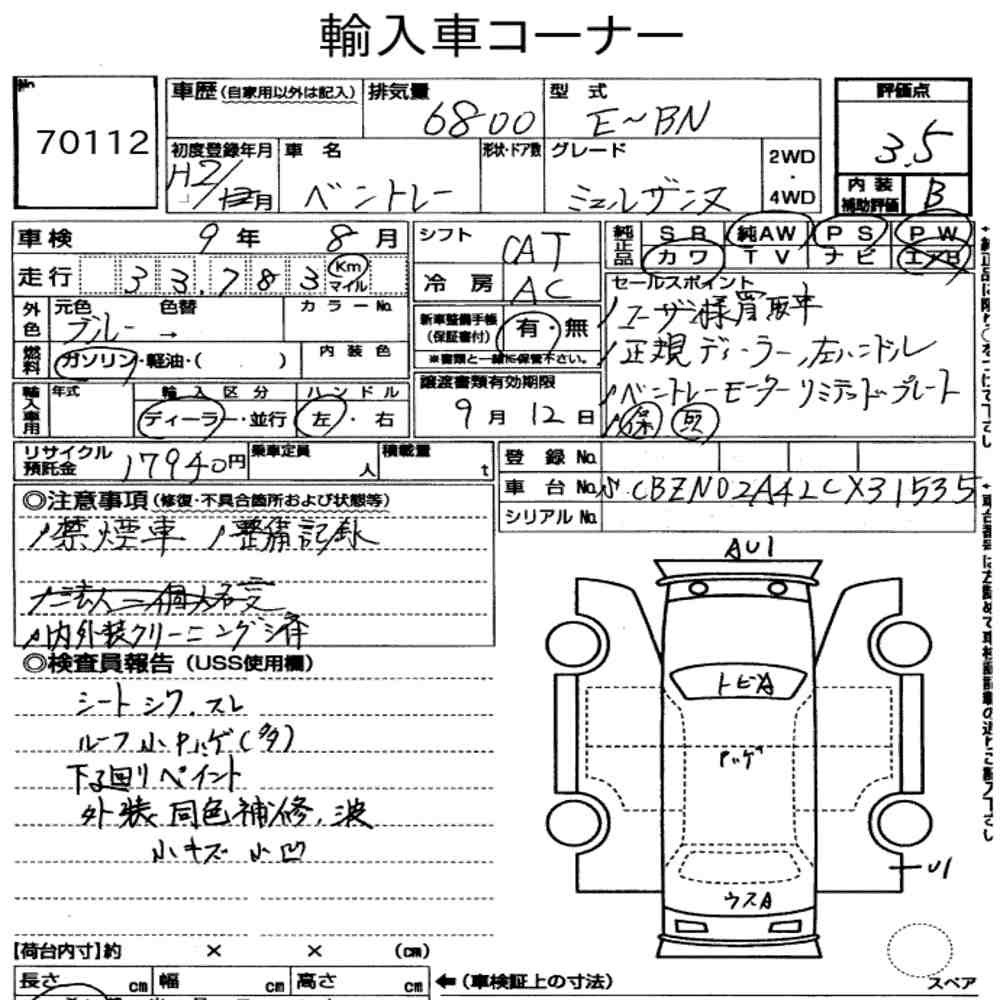 輸入車コーナー
No
70112
車歴(自家用以外は記入) 排気量 6800 型式 E~BN 評価点 3.5
初度登録年月 H2/12月 車名 ベントレー 形状・ドア数 グレード ミュルザンヌ 2WD・4WD 内装補助評価 B
車検 9年 8月 シフト CAT 純正品 SR 純AW PS PW
走行 33,783 Km マイル 冷房 AC カワ TV ナビ エアB
外色 元色 ブルー 色替 → カラーNo.
新車整備手帳(保証書付) 有・無
※書類と一緒に保管下さい。
燃料 ガソリン・軽油・( ) 内装色
セールスポイント
ユーザー様買取車
正規ディーラー、左ハンドル
ベントレーモーターリミテッドプレート
保 取
輸入車用 年式 輸入区分 ディーラー・並行 ハンドル 左・右
譲渡書類有効期限 9月12日
リサイクル預託金 17940円 乗車定員 人 積載量 t
登録No.
車台No. SCBZN02A4LCX31535
シリアルNo.
◎注意事項(修復・不具合箇所および状態等)
禁煙車 整備記録
内外装クリーニング済
◎検査員報告(USS使用欄)
シートシワ、スレ
ルーフ小Pハゲ(多)
下回りペイント
外装同色補修、波
小キズ 小凹
AU1
トビA
Pハゲ
U1
ウスA
スペア
【荷台内寸】約 × × (cm)
長さ cm 幅 cm 高さ cm ←(車検証上の寸法)